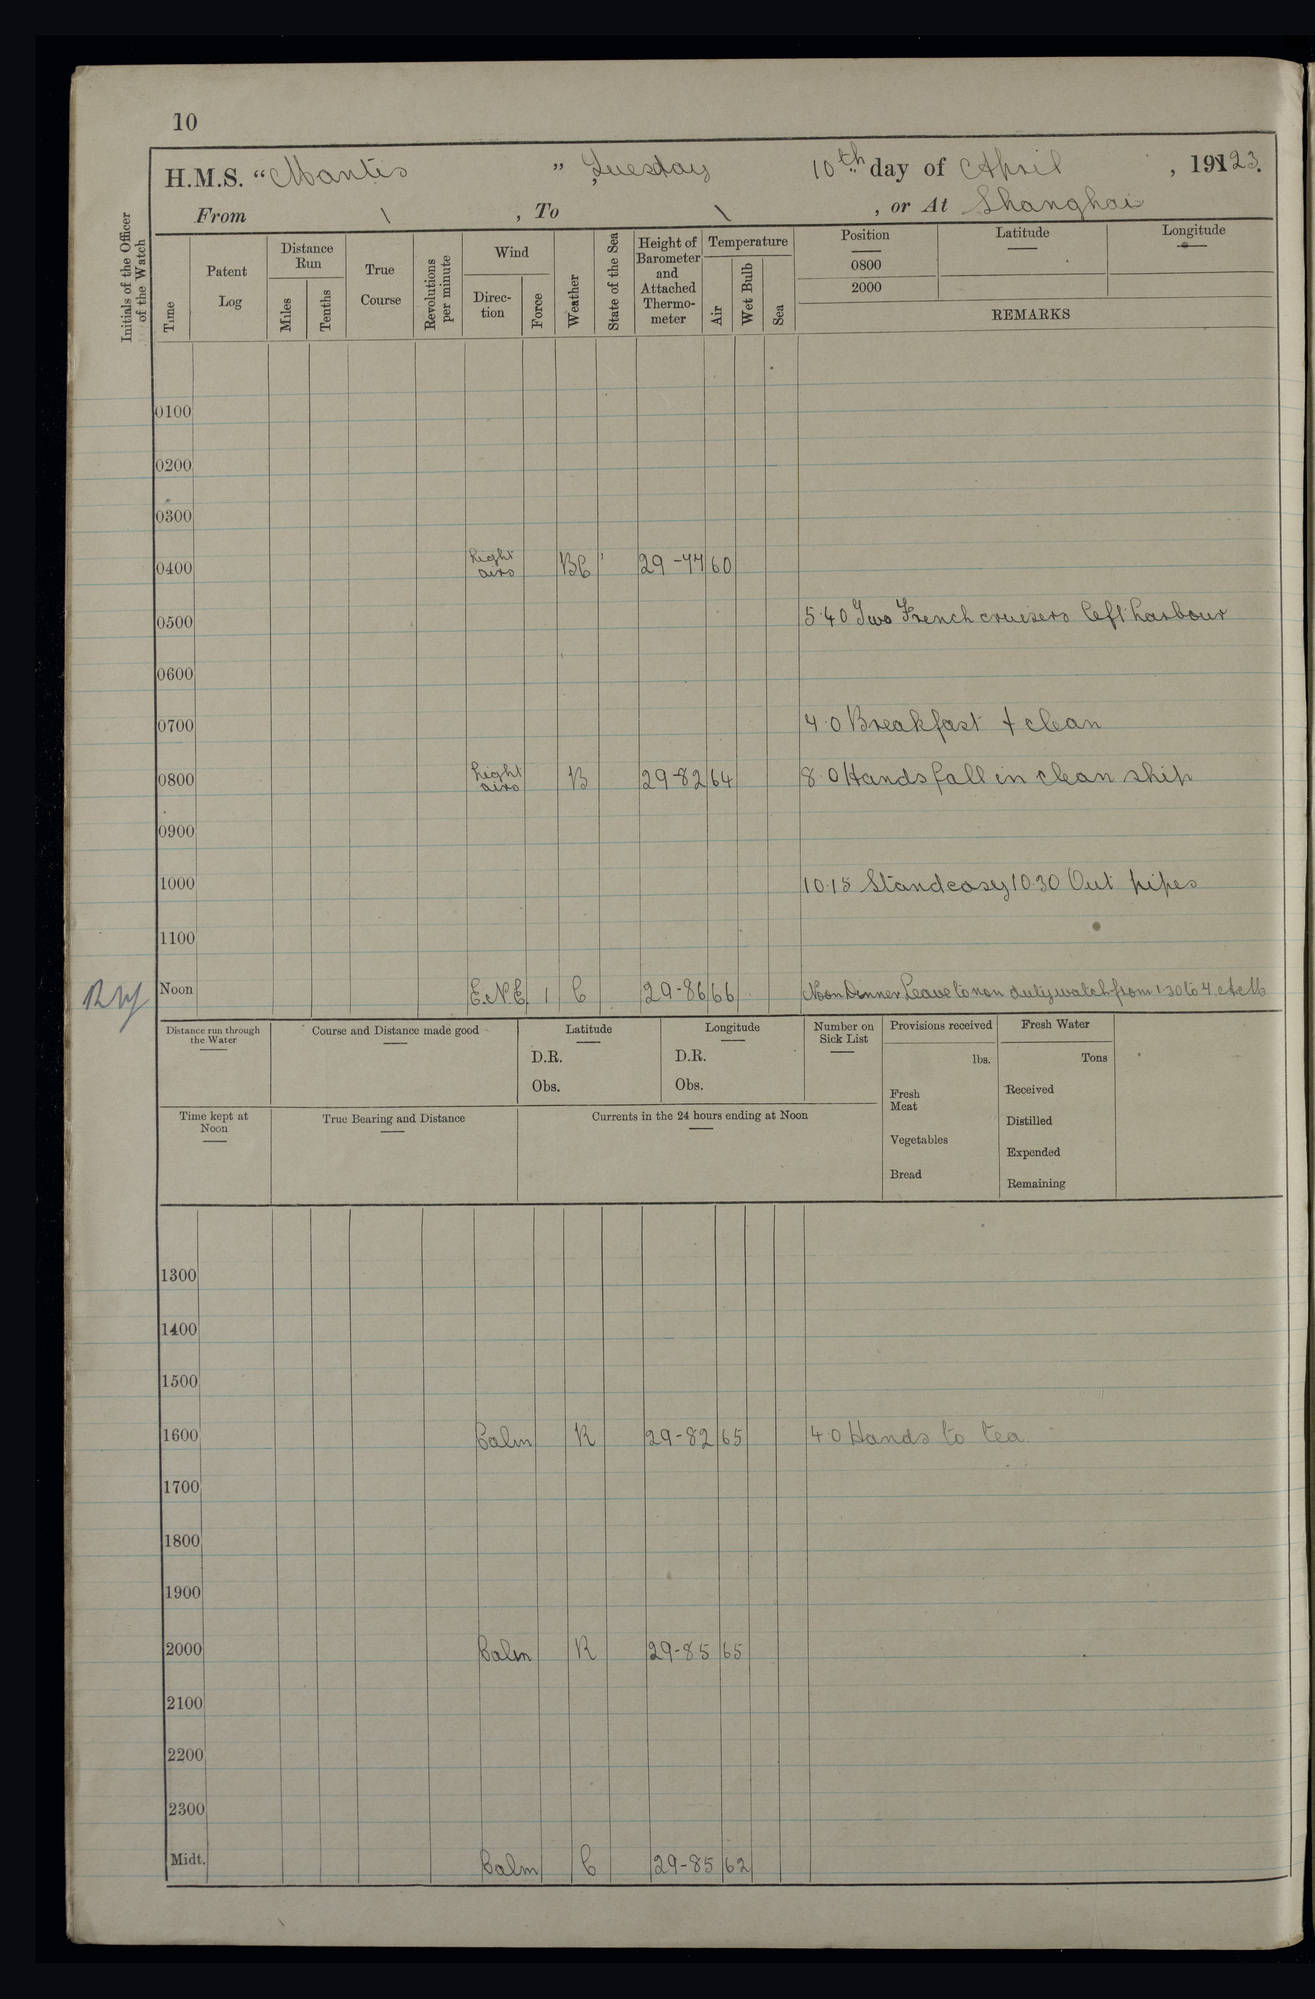 10
H.M.S. “Mantis ” Tuesday 10th day of April , 1923.
From \ , To \ , or At Shanghai
Initials of the Officer of the Watch
Time
Patent Log
Distance Run
Miles
Tenths
True Course
Revolutions per minute
Wind
Direc-tion
Force
Weather
State of the Sea
Height of Barometer and Attached Thermo-meter
Temperature
Air
Wet Bulb
Sea
Position
0800
2000
Latitude
Longitude
REMARKS
0100
0200
0300
0400 Light airs BC 29-77 60
0500 5.40 Two French cruisers left harbour
0600
0700 7.0 Breakfast + clean
0800 Light airs B 29-82 64 8.0 Hands fall in clean ship
0900
1000 10.15 Standeasy 10.30 Out pipes
1100
Noon E.N.E 1 C 29-86 66 Noon Dinner Leave to non duty watch from 1.30 to 7. AM
Distance run through the Water
Course and Distance made good
Latitude
D.R.
Obs.
Longitude
D.R.
Obs.
Number on Sick List
Provisions received
lbs.
Fresh Meat
Vegetables
Bread
Fresh Water
Tons
Received
Distilled
Expended
Remaining
Time kept at Noon
True Bearing and Distance
Currents in the 24 hours ending at Noon
1300
1400
1500
1600 Calm R 29-82 65 4.0 Hands to tea
1700
1800
1900
2000 Calm R 29-85 65
2100
2200
2300
Midt. Calm C 29-85 62